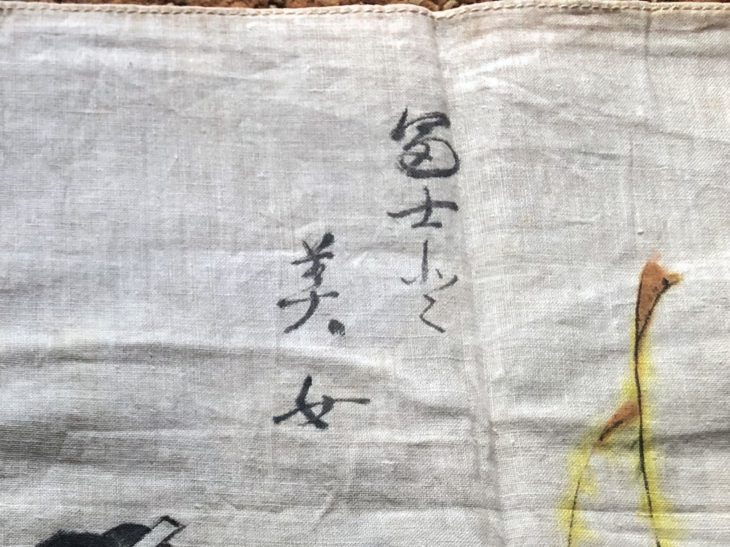 冨士と
美女